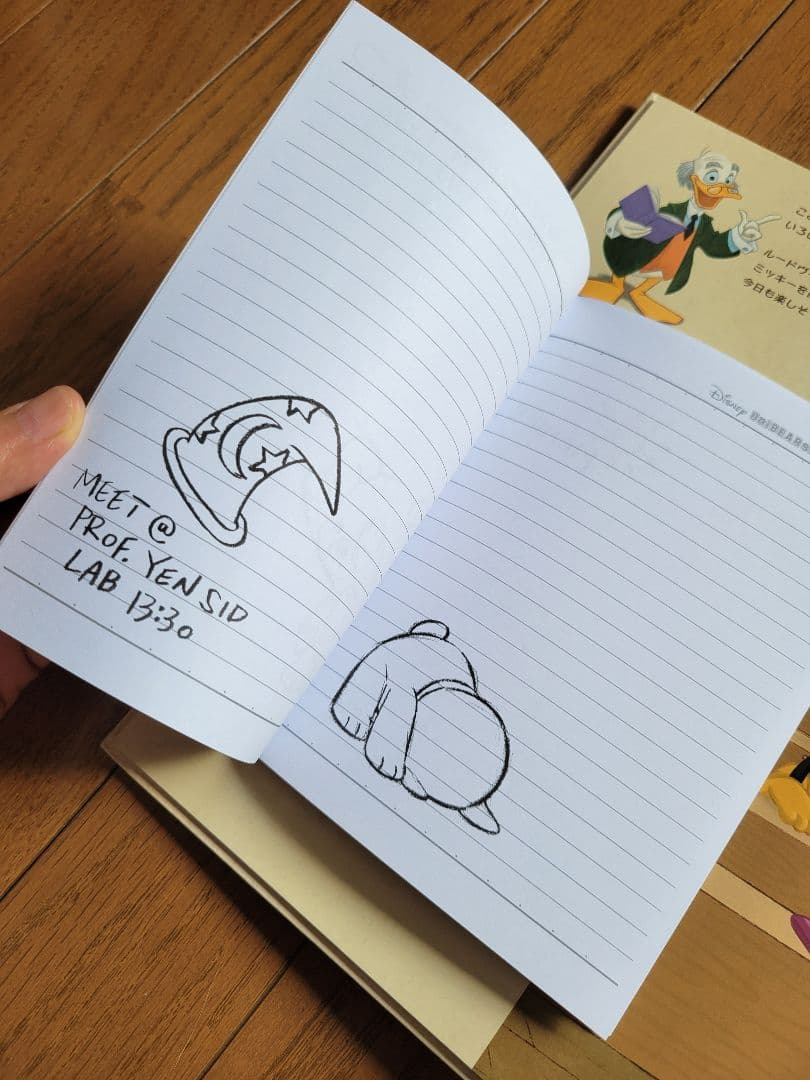 MEET @
PROF. YEN SID
LAB 13:30
Disney UniBEARsi
こ
いろい
ルードヴ
ミッキーを
今日も楽しそ